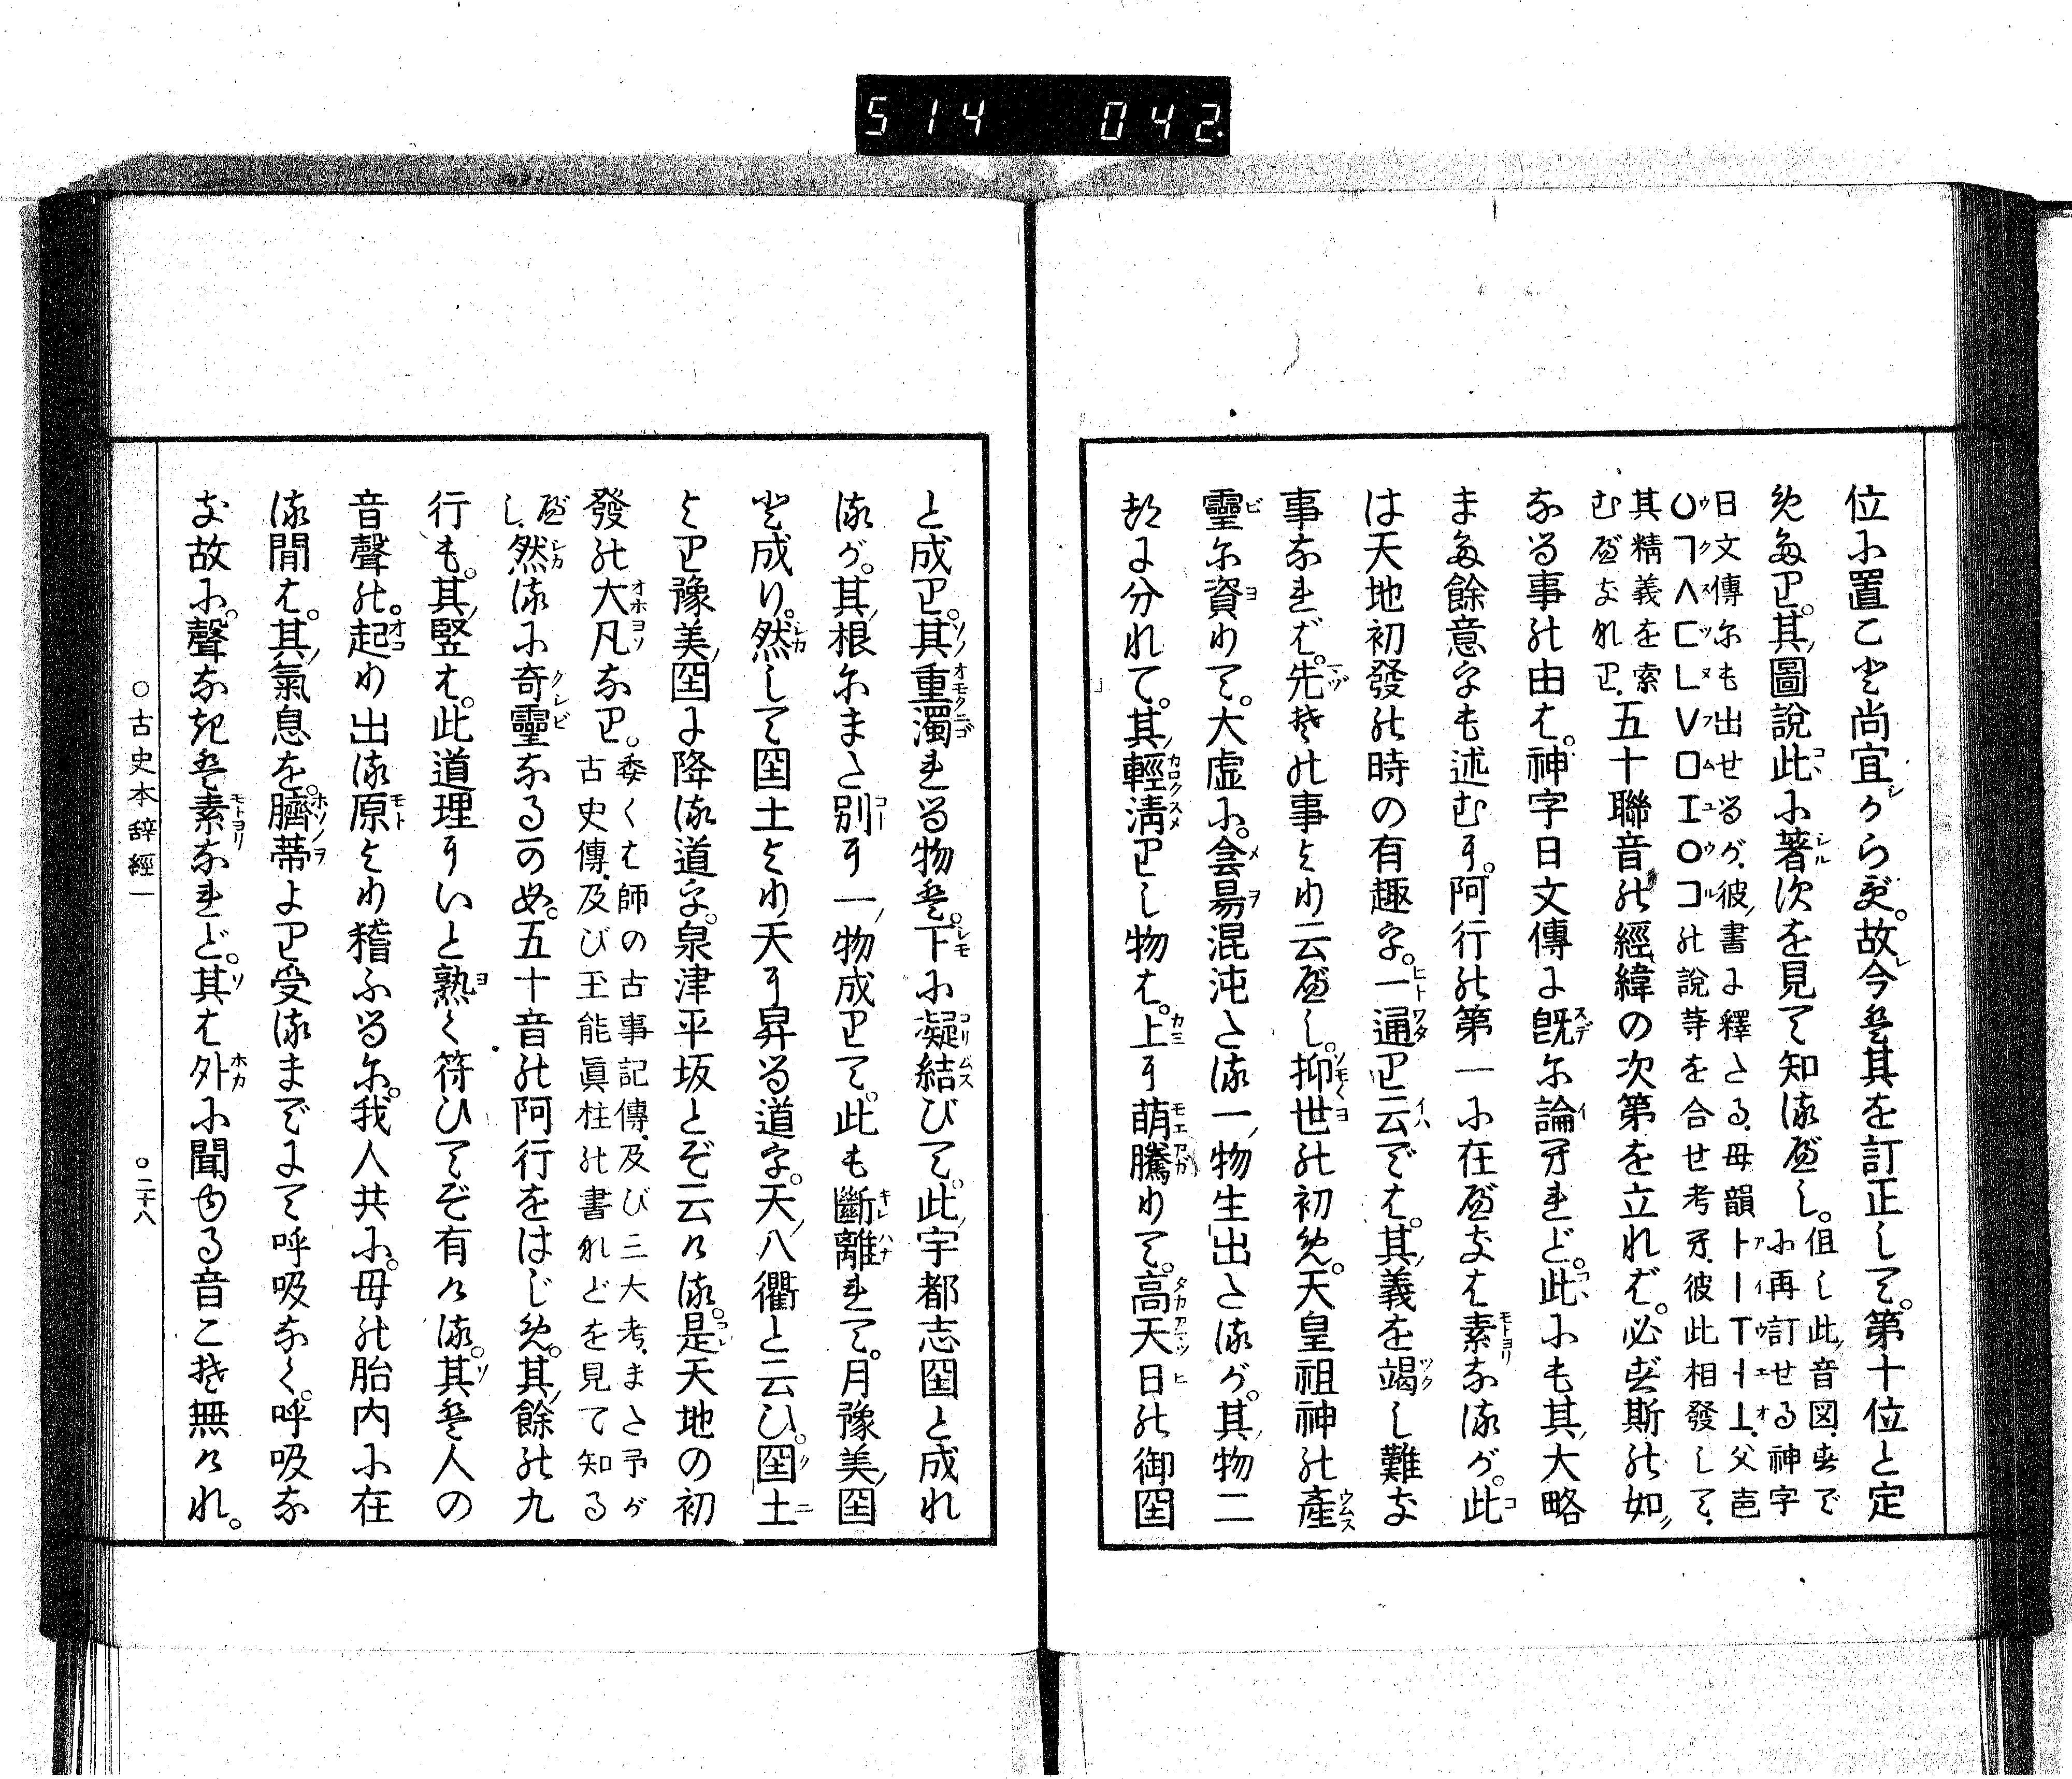 514 042.
位に置こと尚宜からず。故今は其を訂正して。第十位と定
めたり。其圖説此に著次を見て知るべし。但し此音図。まで
に再訂せる神字
日文傳にも出せるが、彼書に釋たる、母韻ㅏㅣㅜㅓㅗ、父音
〇ㄱㅅㄷㄴㅂㅁㅈㅇㄹの説等を合せ考ふ、彼此相發して、
其精義を索
むべきなれり、五十聯音の經緯の次第を立れば。必ず斯の如
なる事の由は。神字日文傳に既に論へれど。此にも其大略
また餘意をも述むに。阿行の第一に在べきは素なるが。此
は天地初發の時の有趣を。一通り云では。其義を竭し難き
事なれば。先その事より云べし。抑世の初め。天皇祖神の産
靈に資りて。大虚に。侌昜混沌たる一物生出たるが。其物二
つに分れて。其輕淸りし物は。上に萌騰りて。高天日の御国
と成り。其重濁れる物は。下に凝結びて。此宇都志国と成れ
るが。其根にまた別に一物成りて。此も斷離れて。月豫美国
と成り。然して国土より天に昇る道を。天八衢と云ひ。国土
より豫美国に降る道を。泉津平坂とぞ云ける。是天地の初
發の大凡なり。委くは師の古事記傳、及び三大考、また予が
古史傳、及び玉能眞柱の書などを見て知る
べし、然るに奇靈なるかも。五十音の阿行をはじめ。其餘の九
行も。其竪は。此道理にいと熟く符ひてぞ有ける。其は人の
音聲の。起り出る原より稽ふるに。我人共に。母の胎内に在
る間は。其氣息を。臍蔕より受るまでにて呼吸なく。呼吸な
き故に。聲なきは素なれど。其は外に聞ゆる音こそ無けれ。
〇古史本辭經一
〇二十八